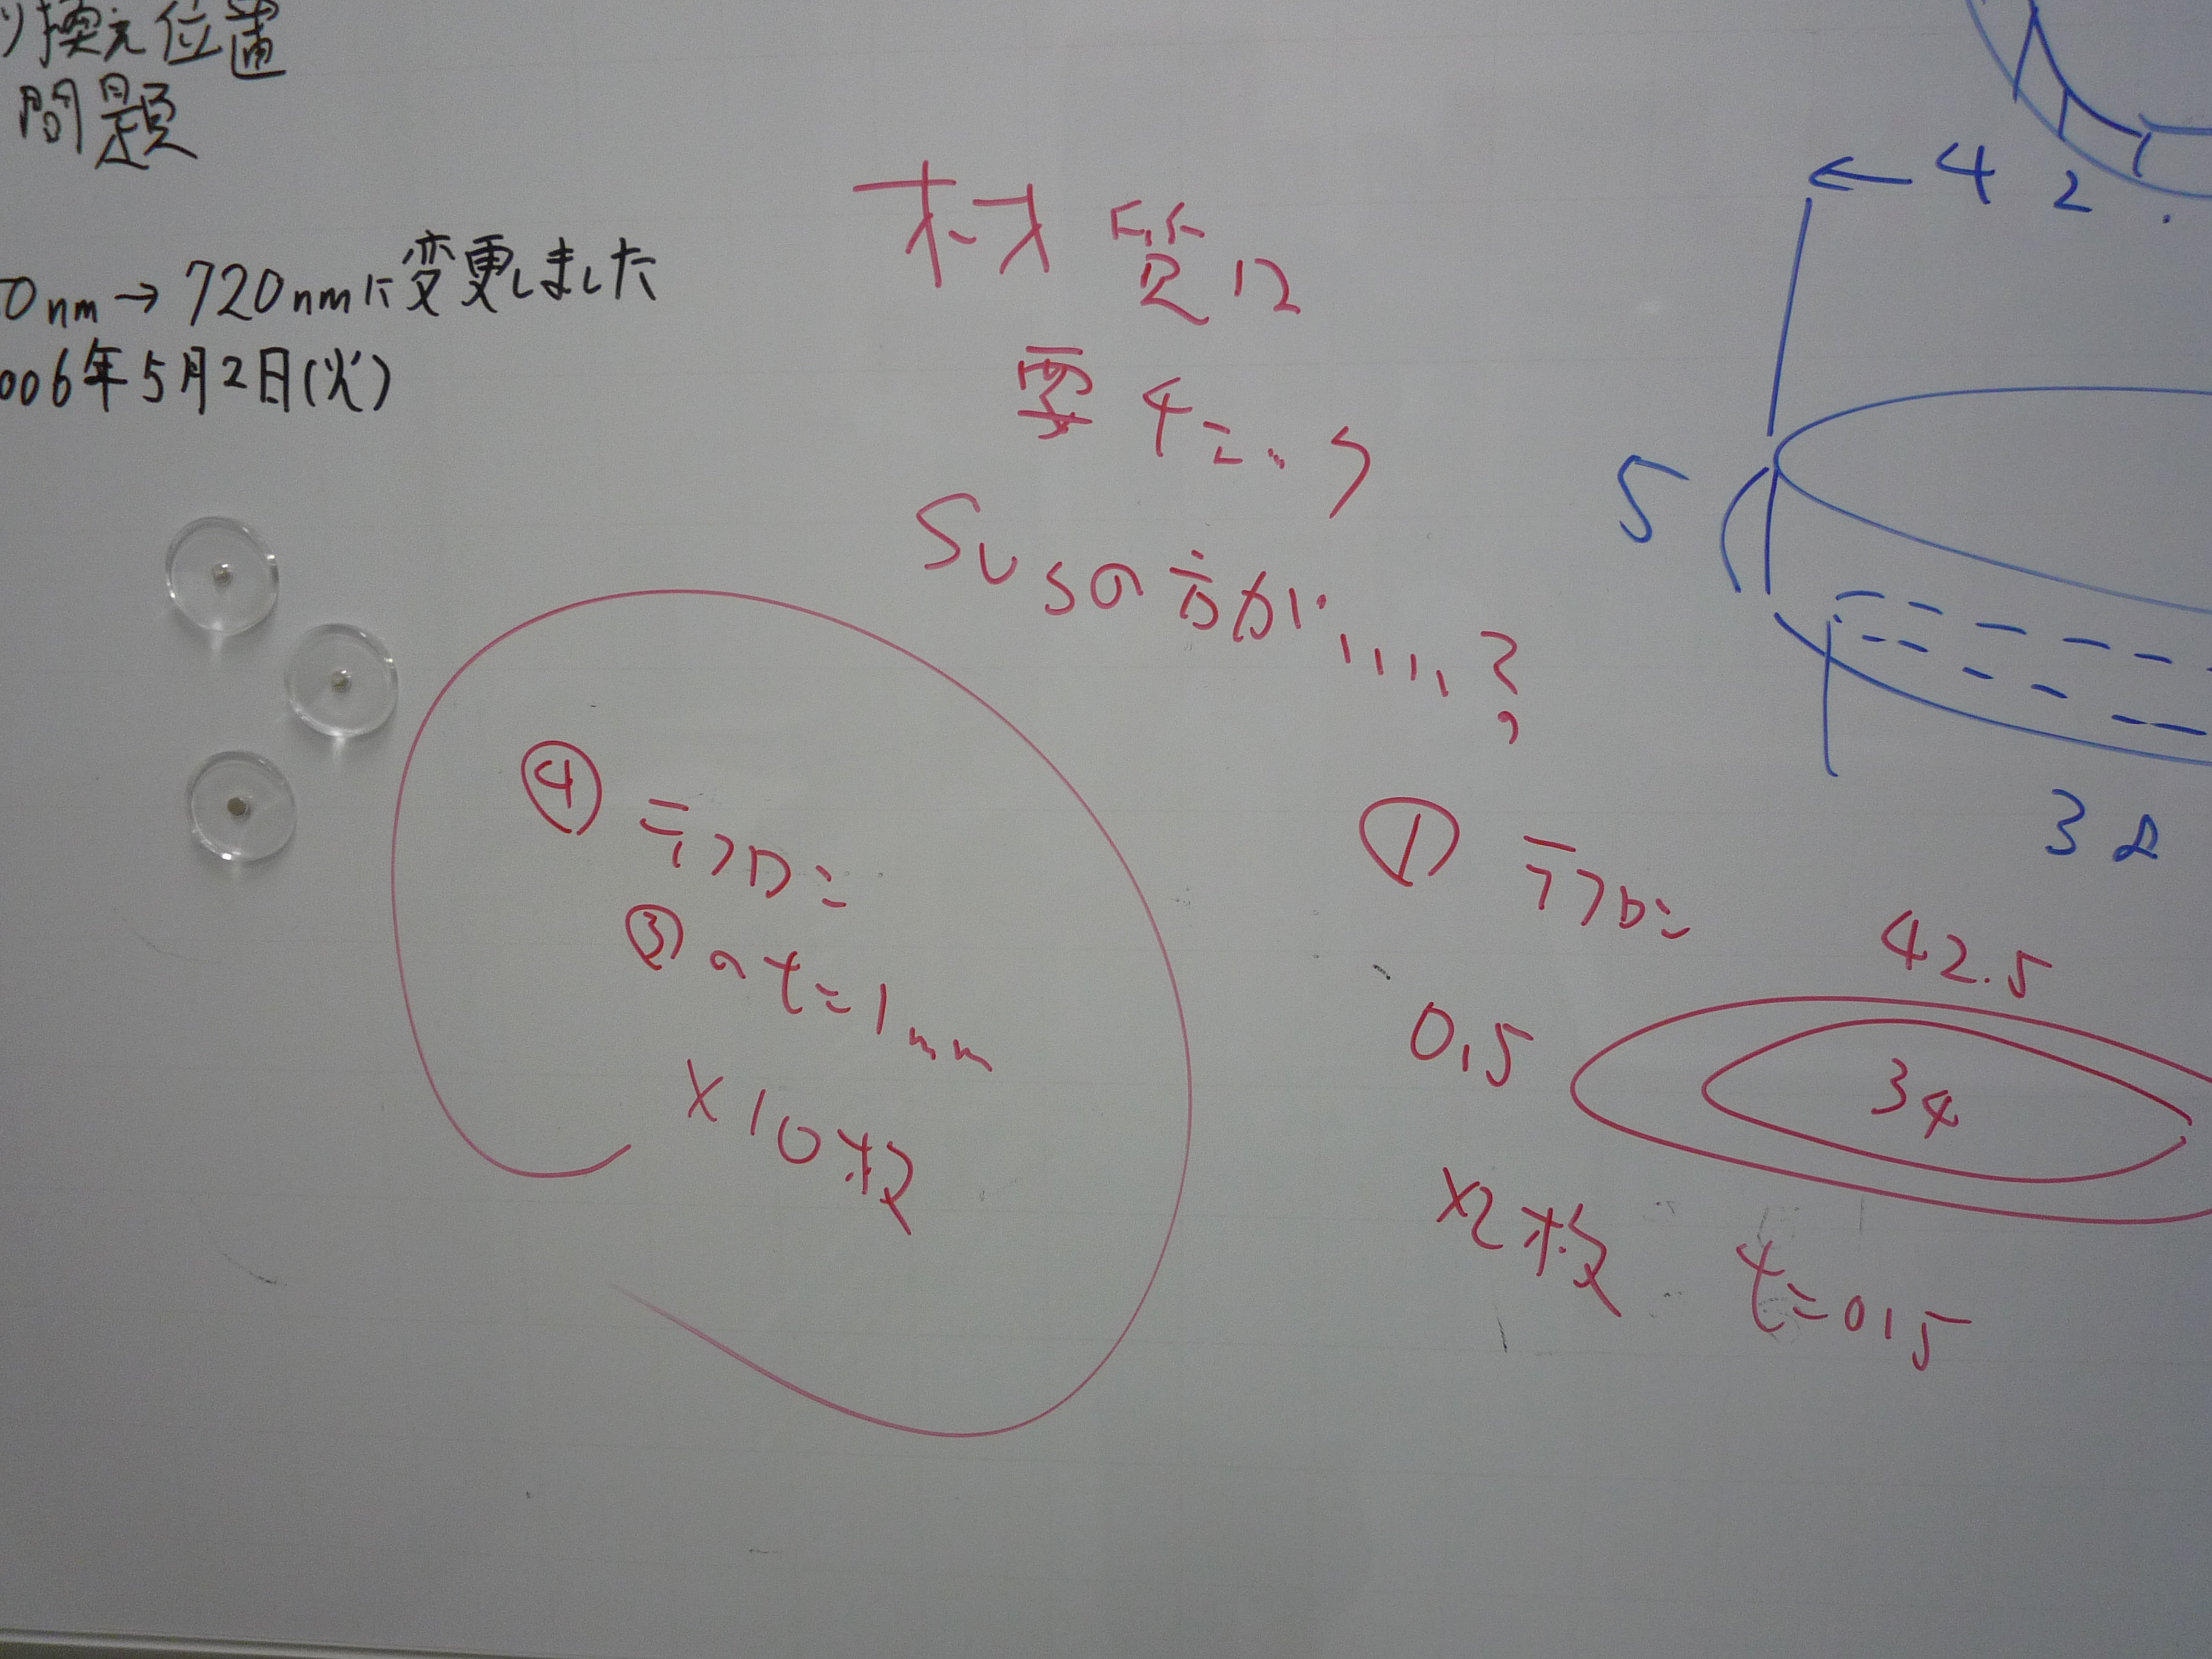 り換え位置
問題
0nm→720nmに変更しました
006年5月2日(火)
材質は
要チェック
SUSの方が....?
④ テフロン
③のt=1mm
×10枚
① テフロン
42.5
0.5
34
×2枚 t=0.5
←42.
5
38